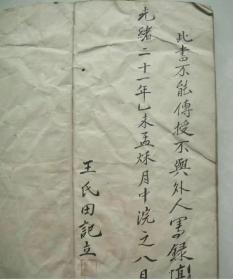 此書不能傳授不與外人寫錄
光緒二十一年乙未孟秌月中浣之八日
王氏田記立